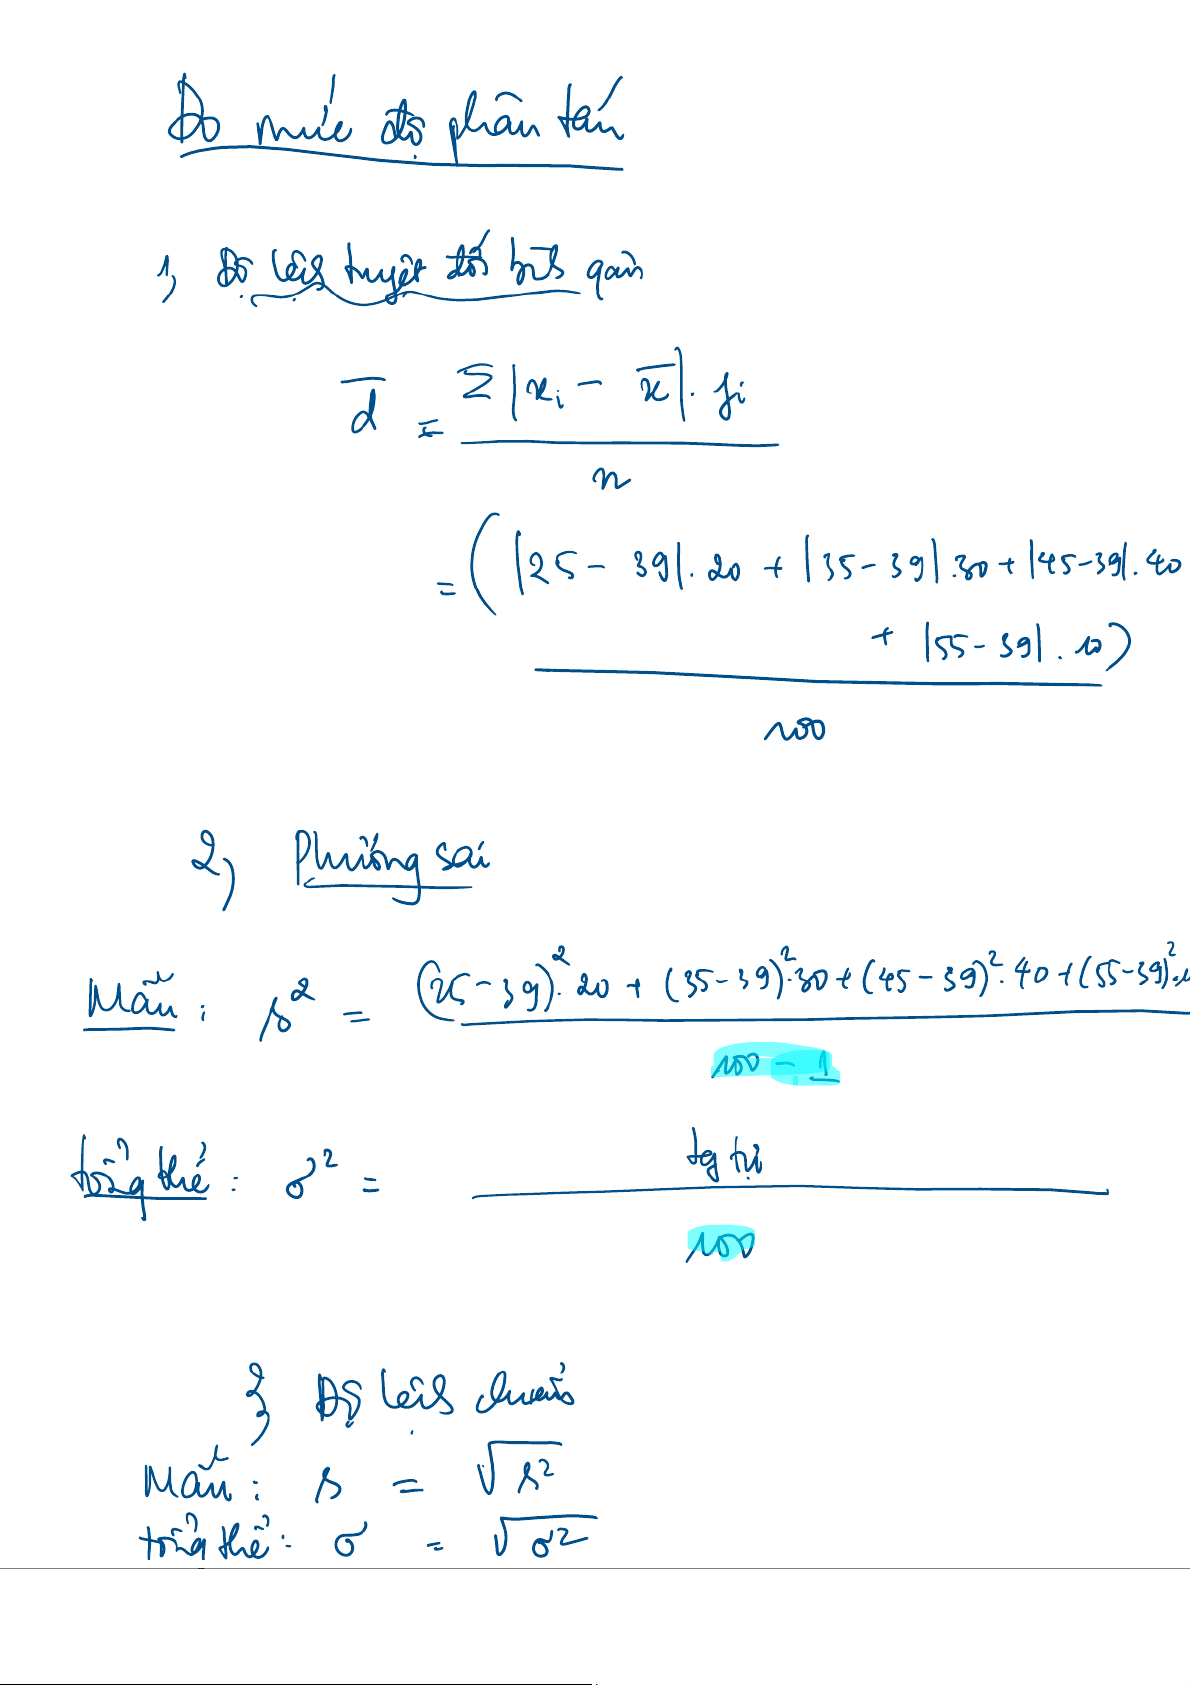 Đo mức độ phân tán
1, Độ lệch tuyệt đối bình quân
d̅ = Σ |xᵢ - x̅| . fi / n
= ( |25 - 39| . 20 + |35 - 39| . 30 + |45 - 39| . 40
+ |55 - 39| . 10 )
100
2, Phương sai
Mẫu : s² = (25 - 39)² . 20 + (35 - 39)² . 30 + (45 - 39)² . 40 + (55 - 39)² .
100 - 1
tổng thể : σ² = tg tự
100
3, Độ lệch chuẩn
Mẫu : s = √s²
tổng thể : σ = √σ²